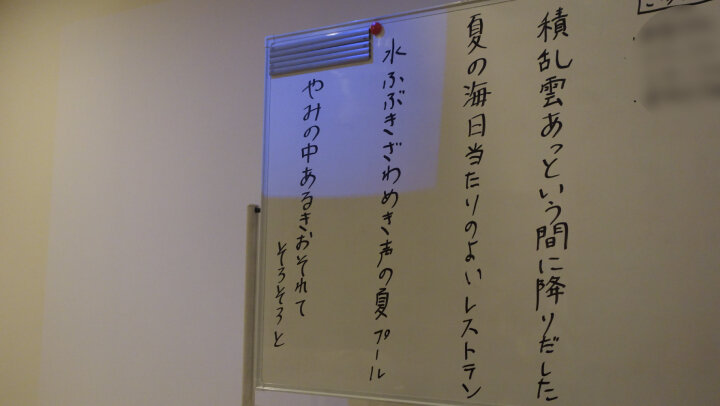 積乱雲あっという間に降りだした
夏の海日当たりのよいレストラン
水ふぶきざわめき声の夏プール
やみの中あるきおそれて
そろそろと